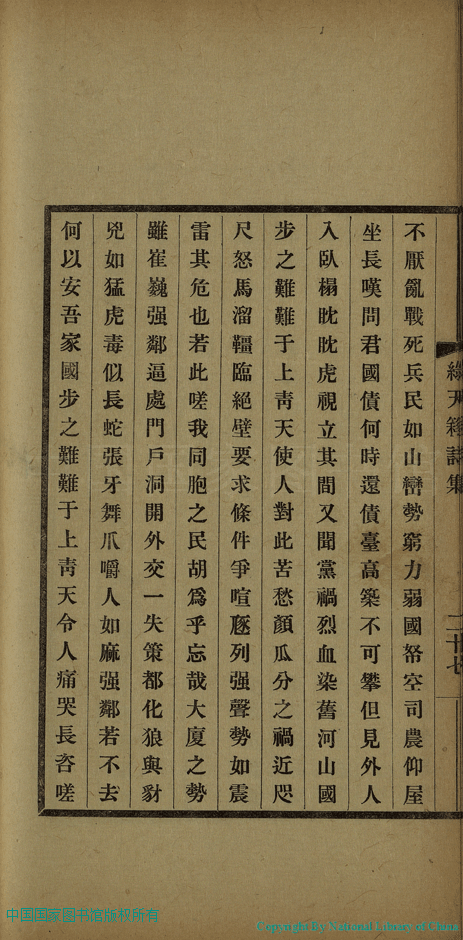 綠天簃詩集
二十七
不厭亂戰死兵民如山巒勢窮力弱國帑空司農仰屋
坐長嘆問君國債何時還債臺高築不可攀但見外人
入臥榻眈眈虎視立其間又聞黨禍烈血染舊河山國
步之難難于上靑天使人對此苦愁顏瓜分之禍近咫
尺怒馬溜韁臨絕壁要求條件爭喧豗列强聲勢如震
雷其危也若此嗟我同胞之民胡爲乎忘哉大厦之勢
雖崔巍强鄰逼處門戶洞開外交一失策都化狼與豺
兇如猛虎毒似長蛇張牙舞爪嚼人如麻强鄰若不去
何以安吾家國步之難難于上靑天令人痛哭長咨嗟
中国国家图书馆版权所有
Copyright By National Library of China